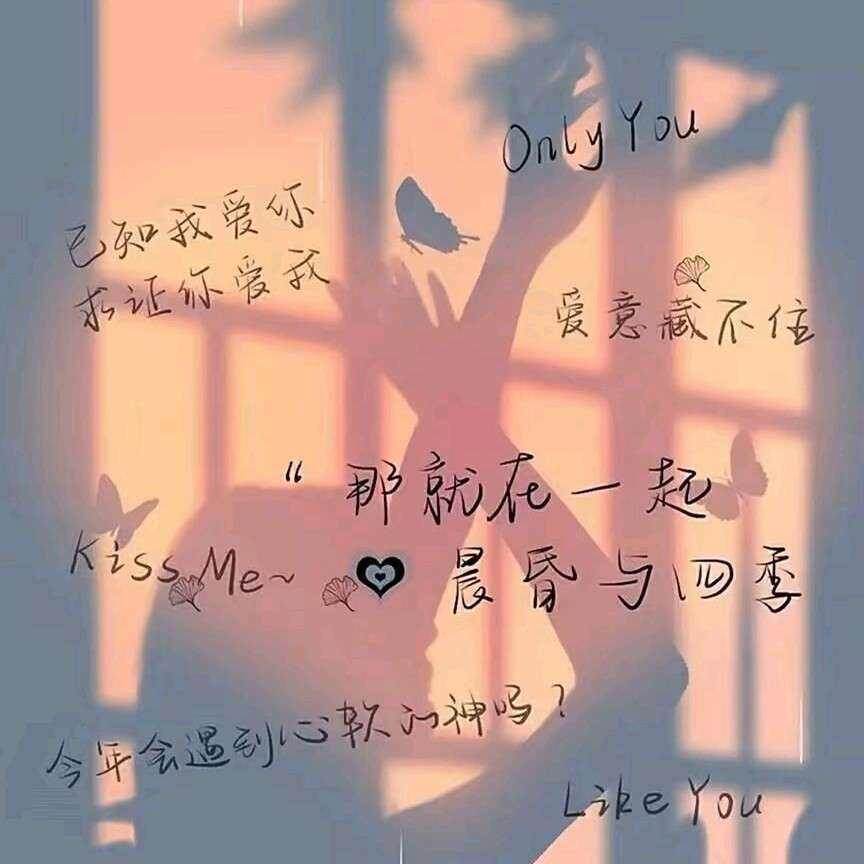 Only You
已知我爱你
求证你爱我
爱意藏不住
“那就在一起
Kiss Me~
晨昏与四季
今年会遇到心软的神吗？
Like You